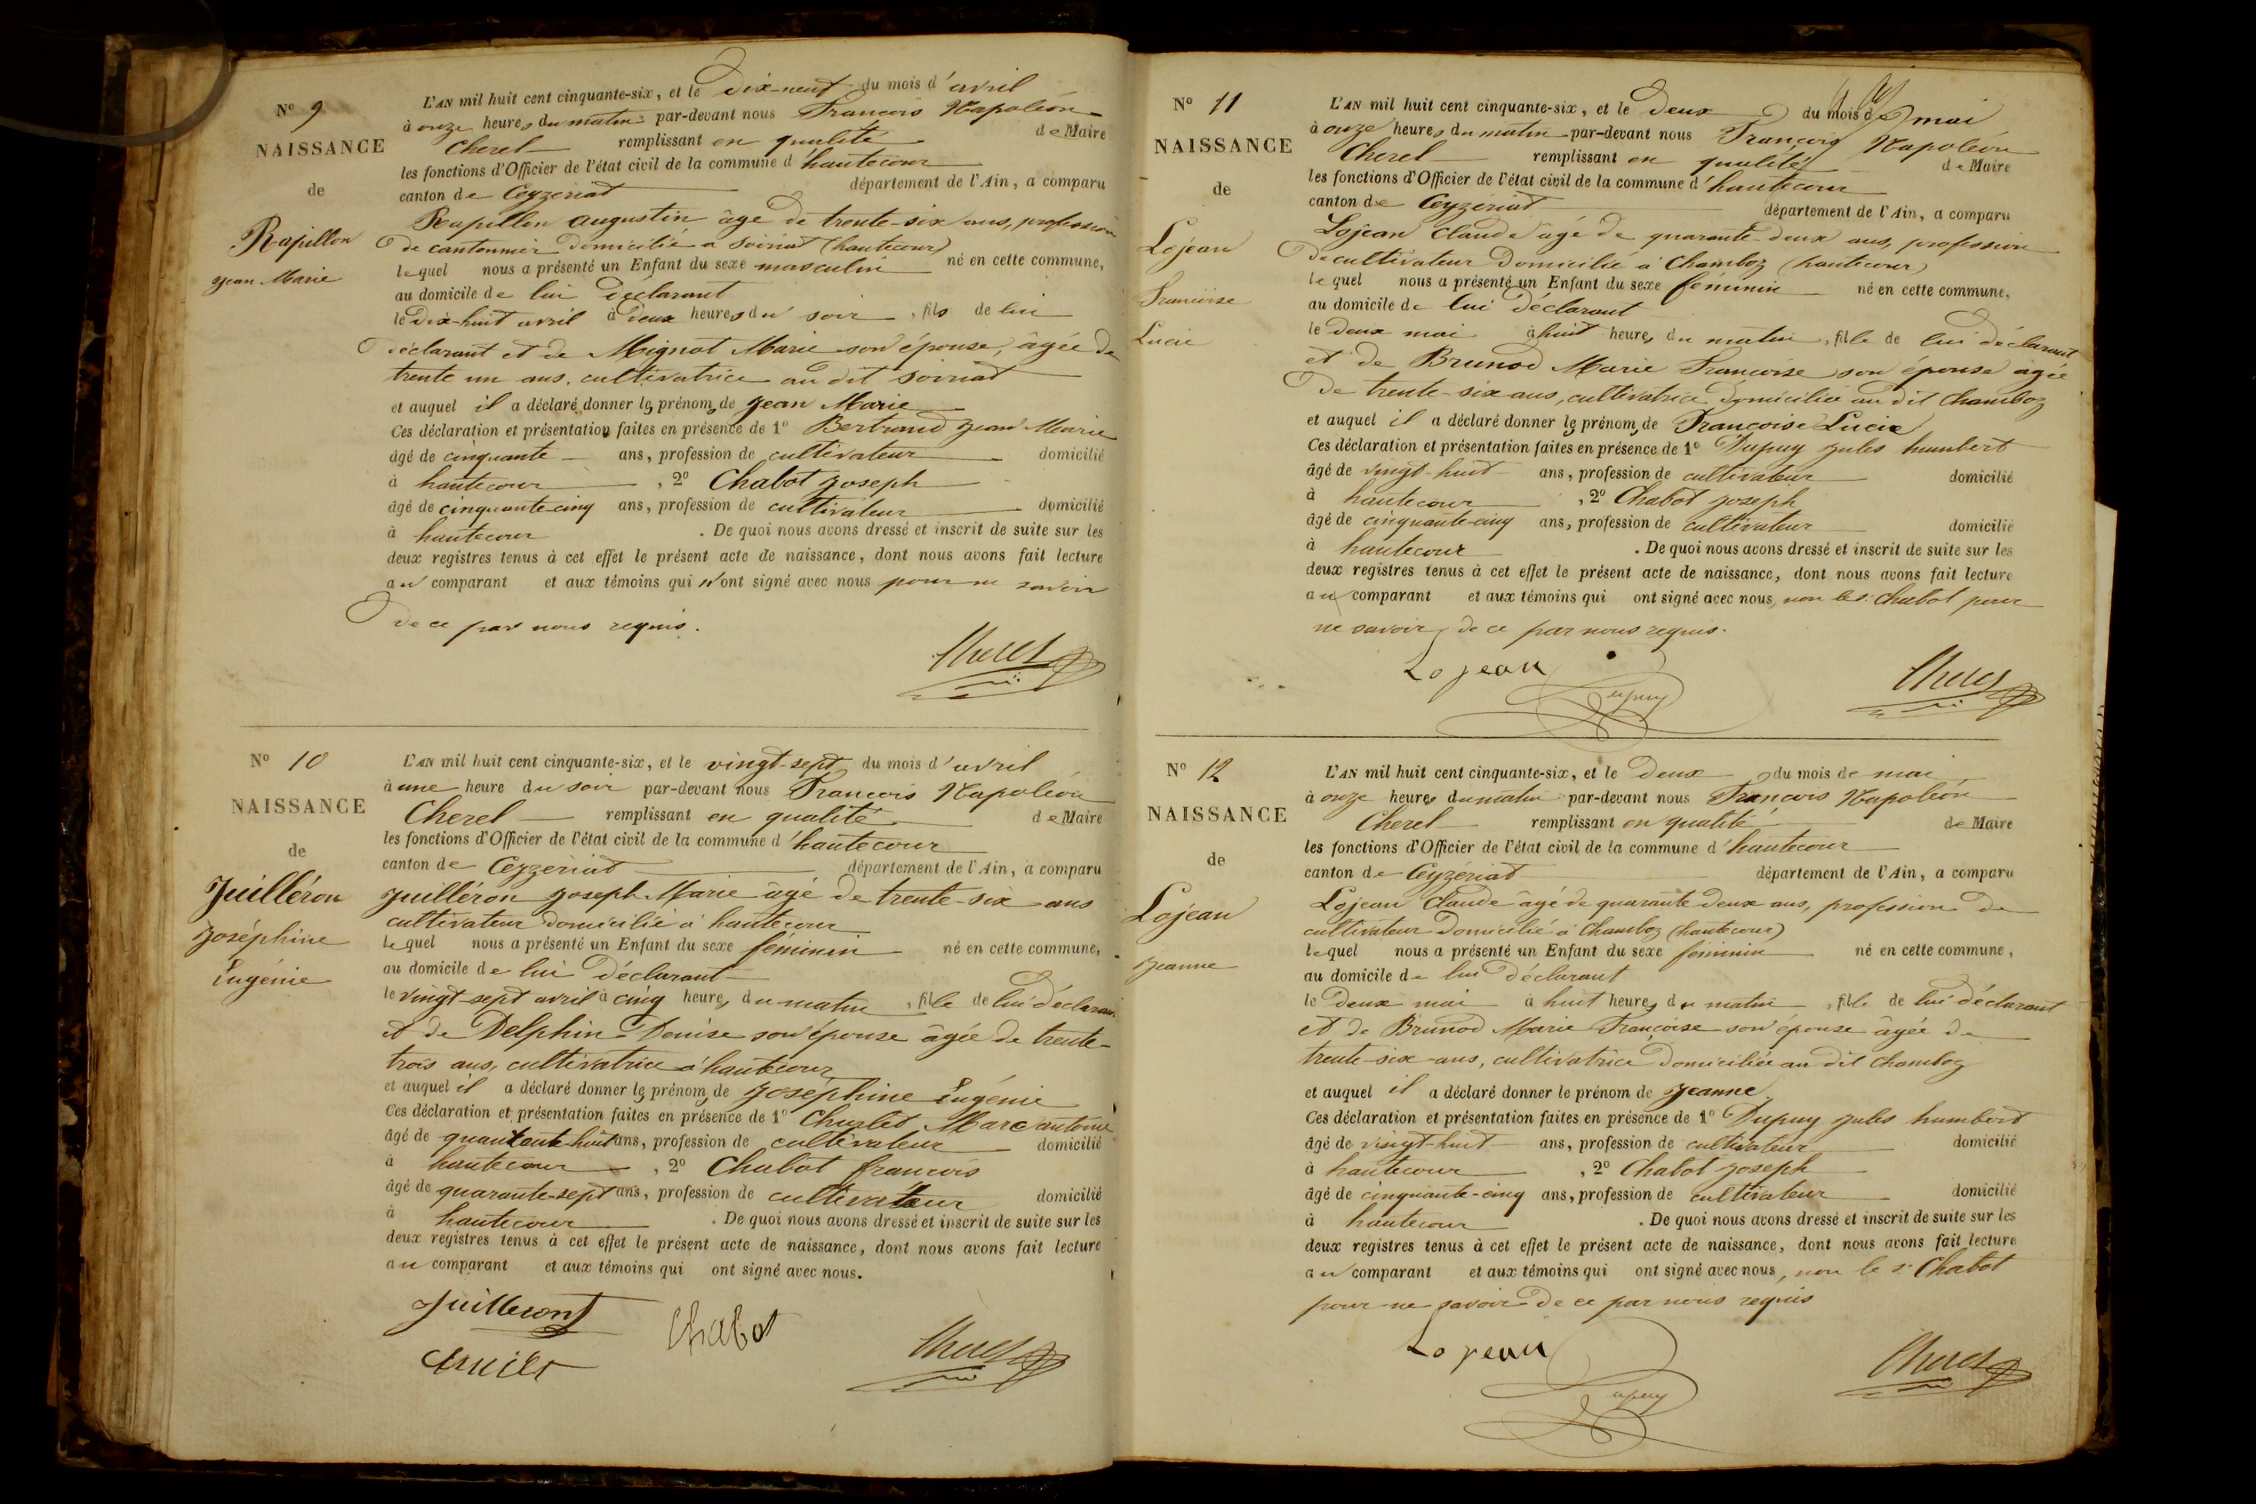 N° 9
NAISSANCE
de
Rapillon
Jean Marie
L'AN mil huit cent cinquante-six, et le dix-neuf du mois d'avril
à onze heures du matin par-devant nous François Napoléon
Cherel remplissant en qualité de Maire
les fonctions d'Officier de l'état civil de la commune d'hautecour
canton de Ceyzeriat département de l'Ain, a comparu
Rapillon augustin âgé de trente-six ans, profession
de cantonnier domicilié à Soiriat (hautecour)
lequel nous a présenté un Enfant du sexe masculin né en cette commune,
au domicile de lui déclarant
le dix-huit avril à deux heures du soir, fils de lui
déclarant et de Mignot Marie son épouse, âgée de
trente un ans, cultivatrice au dit Soiriat
et auquel il a déclaré donner les prénoms de Jean Marie
Ces déclaration et présentation faites en présence de 1° Bertrand Jean Marie
âgé de cinquante ans, profession de cultivateur domicilié
à hautecour, 2° Chabot Joseph
âgé de cinquante-cinq ans, profession de cultivateur domicilié
à hautecour. De quoi nous avons dressé et inscrit de suite sur les
deux registres tenus à cet effet le présent acte de naissance, dont nous avons fait lecture
au comparant et aux témoins qui n'ont signé avec nous pour ne savoir
de ce par nous requis.
Cherel
N° 10
NAISSANCE
de
Juilléron
Joséphine
Eugénie
L'AN mil huit cent cinquante-six, et le vingt-sept du mois d'avril
à une heure du soir par-devant nous François Napoléon
Cherel remplissant en qualité de Maire
les fonctions d'Officier de l'état civil de la commune d'hautecour
canton de Ceyzeriat département de l'Ain, a comparu
Juilléron Joseph Marie âgé de trente-six ans
cultivateur domicilié à hautecour
lequel nous a présenté un Enfant du sexe féminin né en cette commune,
au domicile de lui déclarant
le vingt-sept avril à cinq heures du matin, fille de lui déclarant
et de Delphin Denise son épouse âgée de trente-
trois ans, cultivatrice à hautecour
et auquel il a déclaré donner les prénoms de Joséphine Eugénie
Ces déclaration et présentation faites en présence de 1° Marc antoine
âgé de quarante-huit ans, profession de cultivateur domicilié
à hautecour, 2° Chabot françois
âgé de quarante-sept ans, profession de cultivateur domicilié
à hautecour. De quoi nous avons dressé et inscrit de suite sur les
deux registres tenus à cet effet le présent acte de naissance, dont nous avons fait lecture
au comparant et aux témoins qui ont signé avec nous.
Juilleront
Chabot
Cherel
N° 11
NAISSANCE
de
Lojean
Francoise
Lucie
L'AN mil huit cent cinquante-six, et le deux du mois de mai
à onze heures du matin par-devant nous François Napoléon
Cherel remplissant en qualité de Maire
les fonctions d'Officier de l'état civil de la commune d'hautecour
canton de Ceyzériat département de l'Ain, a comparu
Lojean Claude âgé de quarante-deux ans, profession
de cultivateur domicilié à Chamboz (hautecour)
lequel nous a présenté un Enfant du sexe féminin né en cette commune,
au domicile de lui déclarant
le deux mai à huit heures du matin, fille de lui déclarant
et de Brunod Marie Francoise son épouse agée
de trente-six ans, cultivatrice domiciliée au dit Chamboz
et auquel il a déclaré donner les prénoms de Francoise Lucie
Ces déclaration et présentation faites en présence de 1° Dupuy Jules humbert
âgé de vingt-huit ans, profession de cultivateur domicilié
à hautecour, 2° Chabot Joseph
âgé de cinquante-cinq ans, profession de cultivateur domicilié
à hautecour. De quoi nous avons dressé et inscrit de suite sur les
deux registres tenus à cet effet le présent acte de naissance, dont nous avons fait lecture
au comparant et aux témoins qui ont signé avec nous, non le s. Chabot pour
ne savoir, de ce par nous requis.
Lojean
Dupuy
Cherel
N° 12
NAISSANCE
de
Lojean
Jeanne
L'AN mil huit cent cinquante-six, et le deux du mois de mai
à onze heures du matin par-devant nous François Napoléon
Cherel remplissant en qualité de Maire
les fonctions d'Officier de l'état civil de la commune d'hautecour
canton de Ceyzériat département de l'Ain, a comparu
Lojean Claude âgé de quarante deux ans, profession de
cultivateur domicilié à Chamboz (hautecour)
lequel nous a présenté un Enfant du sexe féminin né en cette commune,
au domicile de lui déclarant
le deux mai à huit heures du matin, fille de lui déclarant
et de Brunod Marie Francoise son épouse âgée de
trente-six ans, cultivatrice domiciliée au dit Chamboz
et auquel il a déclaré donner le prénom de Jeanne
Ces déclaration et présentation faites en présence de 1° Dupuy Jules humbert
âgé de vingt-huit ans, profession de cultivateur domicilié
à hautecour, 2° Chabot Joseph
âgé de cinquante-cinq ans, profession de cultivateur domicilié
à hautecour. De quoi nous avons dressé et inscrit de suite sur les
deux registres tenus à cet effet le présent acte de naissance, dont nous avons fait lecture
au comparant et aux témoins qui ont signé avec nous, non le s. Chabot
pour ne savoir de ce par nous requis
Lojean
Dupuy
Cherel